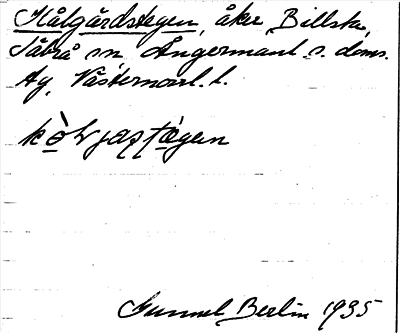 Kålgårdstegen, åker, Billsta,
Såbrå sn, Ångermanl. s. doms.
Ag, Västernorrl. l.
Gunnel Berlin 1935